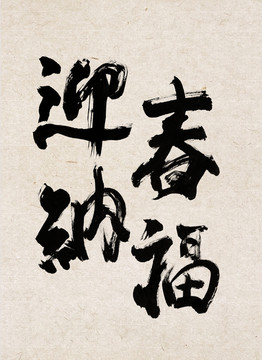 迎春
纳福